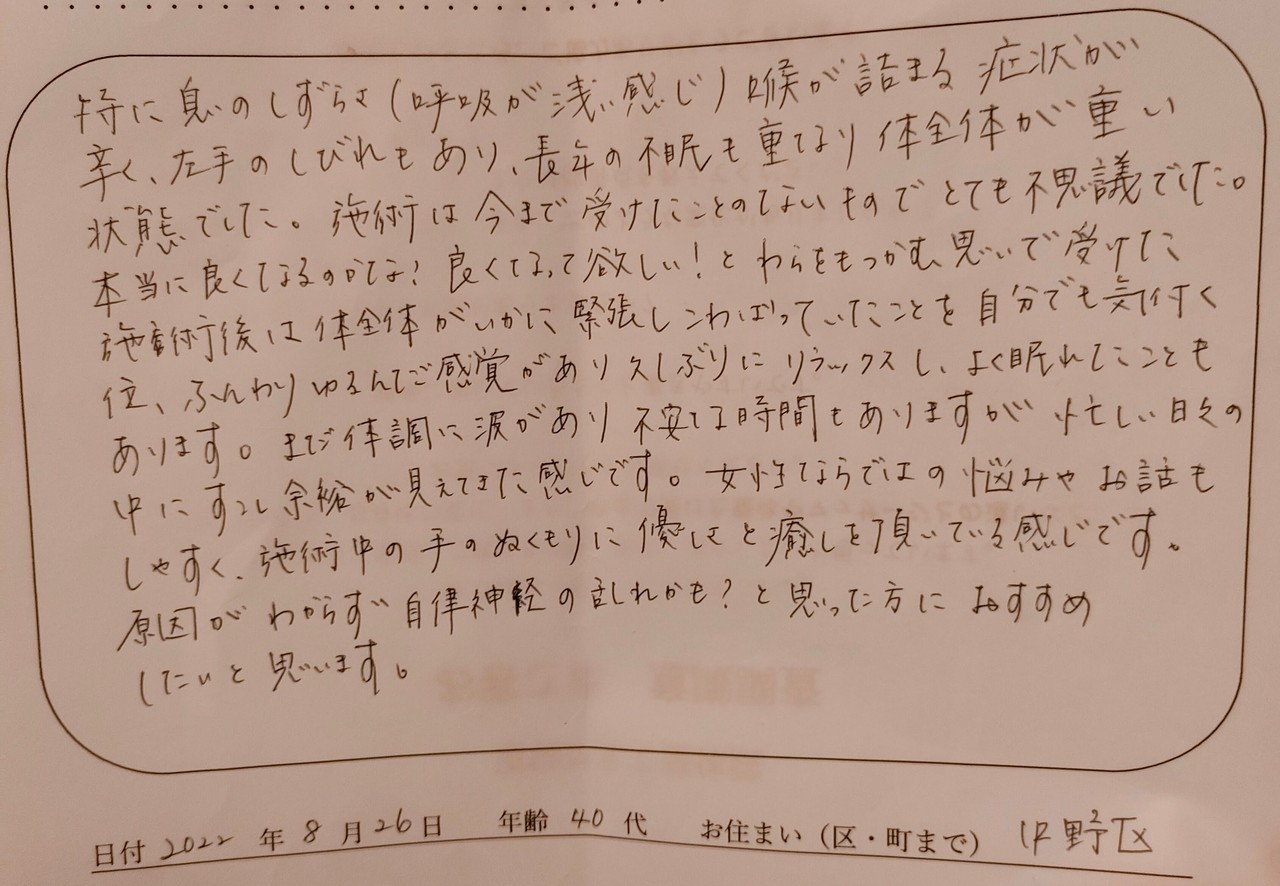 特に息のしずらさ(呼吸が浅い感じ)喉が詰まる症状が
辛く、左手のしびれもあり、長年の不眠も重なり体全体が重い
状態でした。施術は今まで受けたことのないものでとても不思議でした。
本当に良くなるのかな?良くなって欲しい!とわらをもつかむ思いで受けた
施術後は体全体がいかに緊張しこわばっていたことを自分でも気付く
位、ふんわりゆるんだ感覚があり久しぶりにリラックスし、よく眠れたことも
あります。まだ体調に波があり不安な時間もありますが忙しい日々の
中にすこし余裕が見えてきた感じです。女性ならではの悩みやお話も
しやすく、施術中の手のぬくもりに優しさと癒しを頂いている感じです。
原因がわからず自律神経の乱れかも?と思った方におすすめ
したいと思います。
日付 2022 年 8 月 26 日 年齢 40 代 お住まい(区・町まで) 中野区